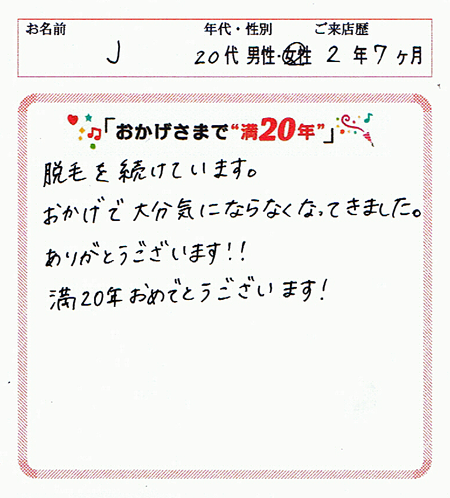 お名前 年代・性別 ご来店歴
J 20代 男性・女性 2年7ヶ月
「おかげさまで“満20年”」
脱毛を続けています。
おかげで大分気にならなくなってきました。
ありがとうございます!!
満20年おめでとうございます!